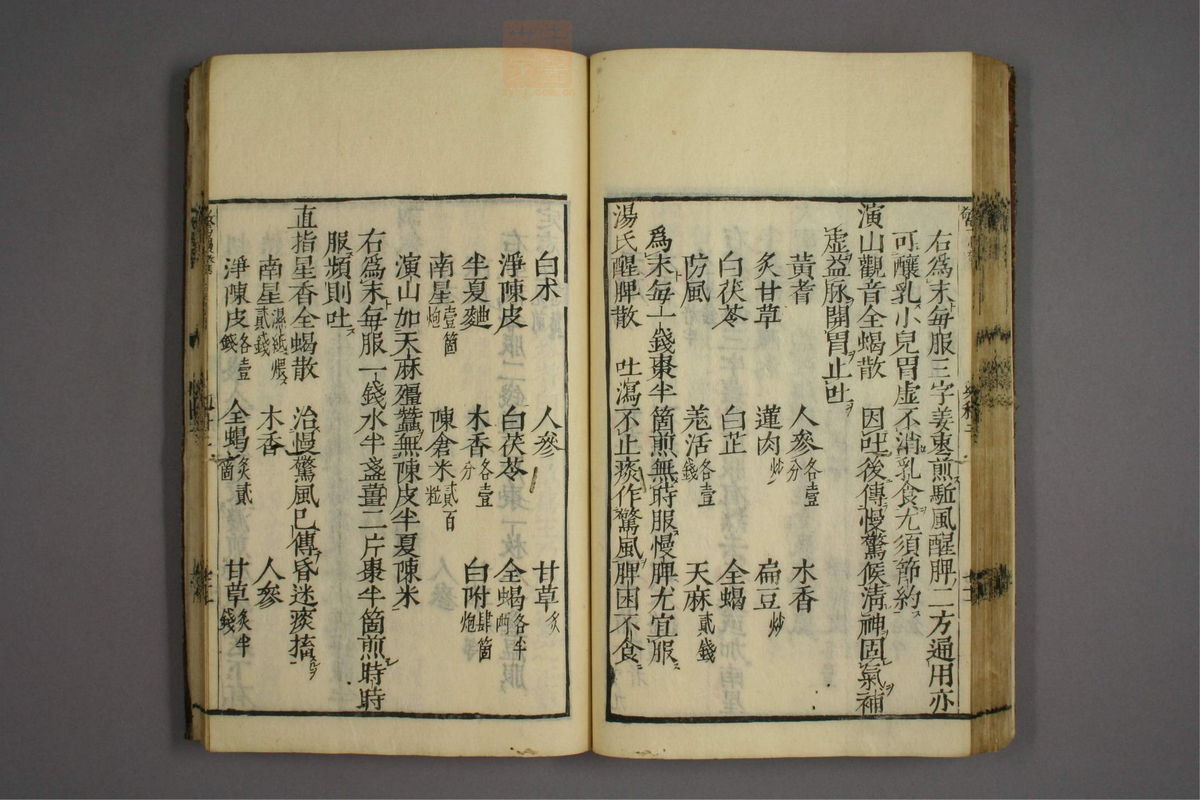 右爲末每服三字姜棗煎駈風醒脾二方通用亦
可釀乳小兒胃虚不消乳食尤須節約
演山觀音全蝎散　因吐後傳慢驚候淸神固氣補
虚益脉開胃止吐
黄耆　人參各壹分　木香
炙甘草　蓮肉炒　扁豆炒
白茯苓　白芷　全蝎
防風　羗活各壹錢　天麻貳錢
爲末每一錢棗半箇煎無時服慢脾尤宜服
湯氏醒脾散　吐瀉不止痰作驚風脾困不食
白术　人參　甘草炙
淨陳皮　白茯苓　全蝎各半兩
半夏麯　木香各壹分　白附肆箇炮
南星壹箇炮　陳倉米貳百粒
演山加天麻殭蠶無陳皮半夏陳米
右爲末每服一錢水半盞薑二片棗半箇煎時時
服頻則吐
直指星香全蝎散　治慢驚風已傳昏迷痰搐
南星濕紙煨貳錢　木香　人參
淨陳皮各壹錢　全蝎炙貳箇　甘草炙半錢